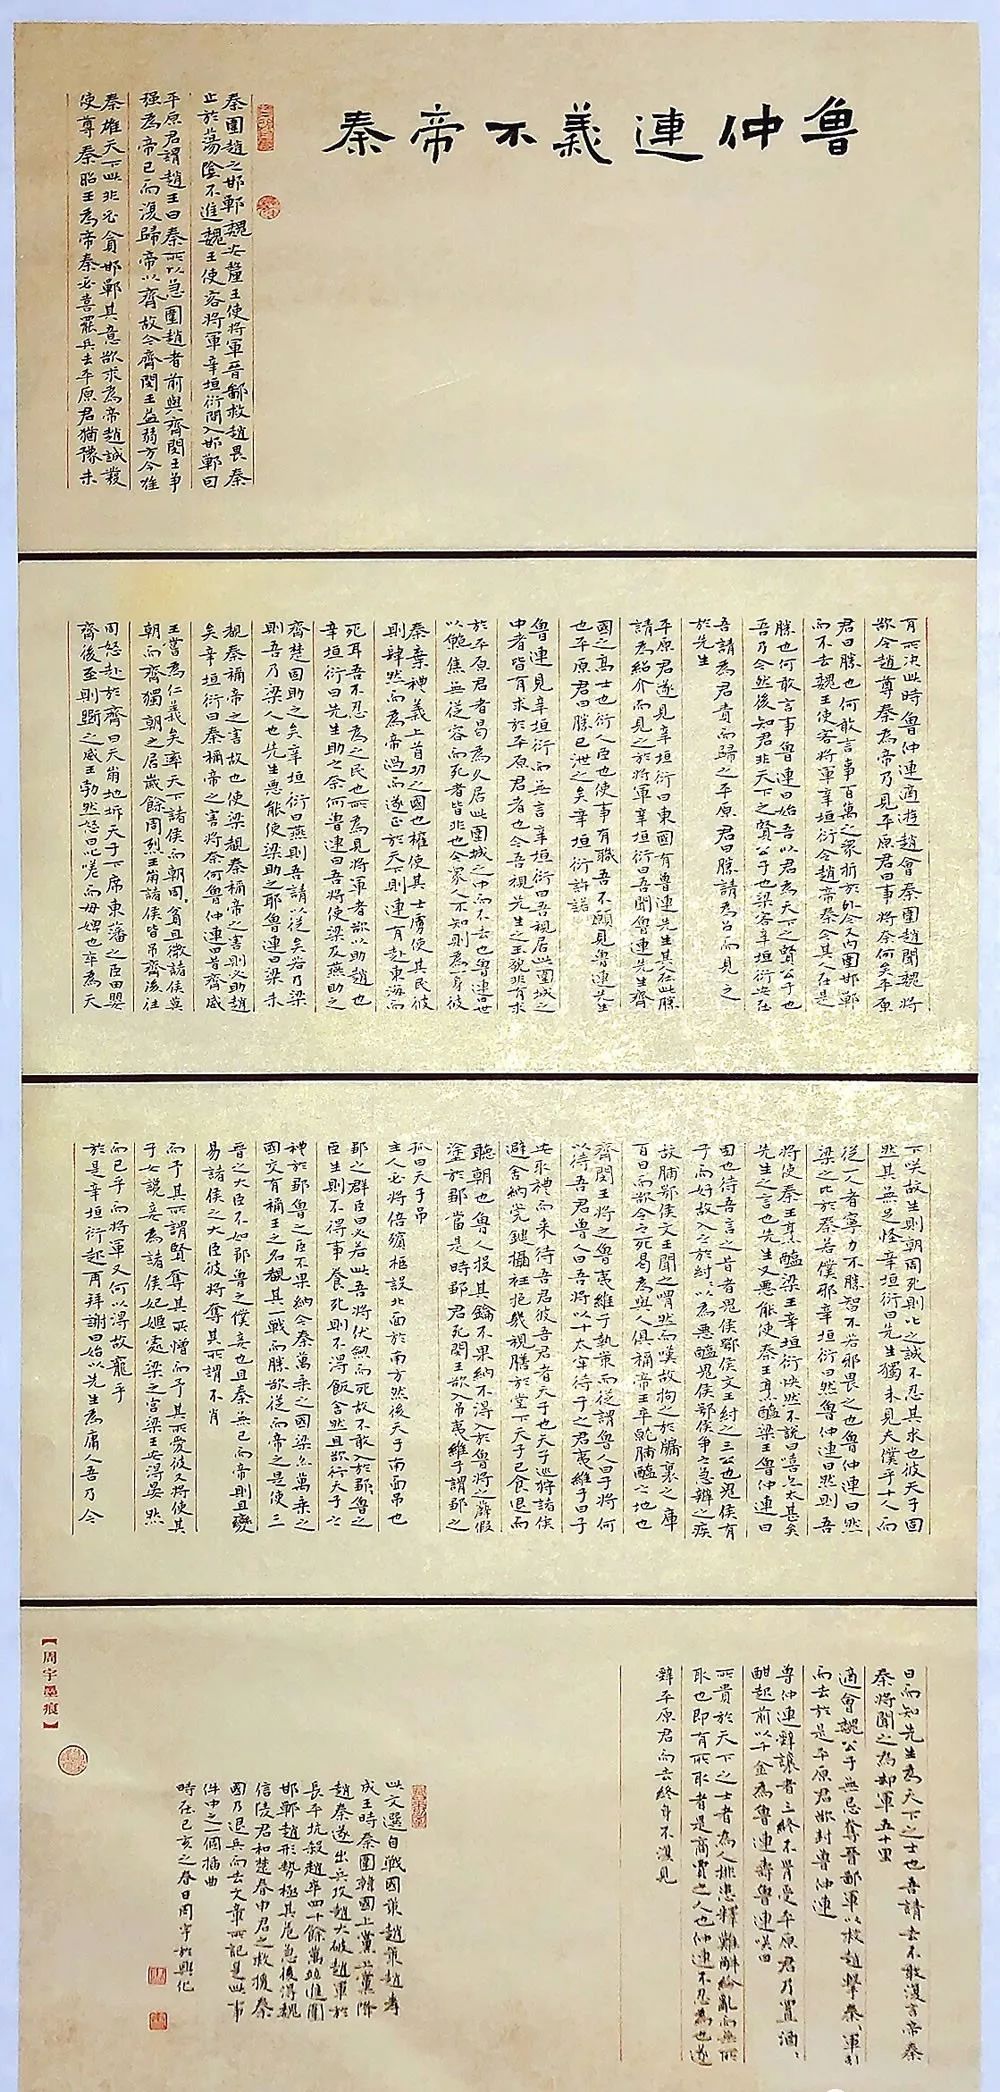 魯仲連義不帝秦
秦圍趙之邯鄲魏安釐王使將軍晉鄙救趙畏秦
止於蕩陰不進魏王使客將軍辛垣衍間入邯鄲因
平原君謂趙王曰秦所以急圍趙者前與齊閔王爭
强為帝已而復歸帝以齊故今齊閔王益弱方今唯
秦雄天下此非必貪邯鄲其意欲求為帝趙誠發
使尊秦昭王為帝秦必喜罷兵去平原君猶豫未
有所决此時魯仲連適遊趙會秦圍趙聞魏將
欲令趙尊秦為帝乃見平原君曰事將奈何矣平原
君曰勝也何敢言事百萬之衆折於外今又内圍邯鄲
而不去魏王使客將軍辛垣衍令趙帝秦今其人在是
勝也何敢言事魯連曰始吾以君為天下之賢公子也
吾乃今然後知君非天下之賢公子也梁客辛垣衍安在
吾請為君責而歸之平原君曰勝請為召而見之
於先生
平原君遂見辛垣衍曰東國有魯連先生其人在此勝
請為紹介而見之於將軍辛垣衍曰吾聞魯連先生齊
國之髙士也衍人臣也使事有職吾不願見魯連先生
也平原君曰勝已泄之矣辛垣衍許諾
魯連見辛垣衍而無言辛垣衍曰吾視居此圍城之
中者皆有求於平原君者也今吾視先生之玉貌非有求
於平原君者曷為久居此圍城之中而不去也魯連曰世
以鮑焦無從容而死者皆非也今衆人不知則為一身彼
秦棄禮義上首功之國也權使其士虜使其民彼
則肆然而為帝過而遂正於天下則連有赴東海而
死耳吾不忍為之民也所為見將軍者欲以助趙也
辛垣衍曰先生助之奈何魯連曰吾將使梁及燕助之
齊楚固助之矣辛垣衍曰燕則吾請以從矣若乃梁
則吾乃梁人也先生惡能使梁助之耶魯連曰梁未
覩秦稱帝之害故也使梁覩秦稱帝之害則必助趙
矣辛垣衍曰秦稱帝之害將奈何魯仲連曰昔齊威
王嘗為仁義矣率天下諸侯而朝周周貧且微諸侯莫
朝而齊獨朝之居歲餘周烈王崩諸侯皆吊齊後往
周怒赴於齊曰天崩地坼天子下席東藩之臣田嬰
齊後至則斮之威王勃然怒曰叱嗟而母婢也卒為天
下咲故生則朝周死則叱之誠不忍其求也彼天子固
然其無足怪辛垣衍曰先生獨未見夫僕乎十人而
從一人者寧力不勝智不若邪畏之也魯仲連曰然
梁之比於秦若僕邪辛垣衍曰然魯仲連曰然則吾
將使秦王烹醢梁王辛垣衍怏然不説曰嘻亦太甚矣
先生之言也先生又惡能使秦王烹醢梁王魯仲連曰
固也待吾言之昔者鬼侯鄂侯文王紂之三公也鬼侯有
子而好故入之於紂紂以為惡醢鬼侯鄂侯爭之急辨之疾
故脯鄂侯文王聞之喟然而嘆故拘之於牖裏之庫
百日而欲令之死曷為與人俱稱帝王卒就脯醢之地也
齊閔王將之魯夷維子執策而從謂魯人曰子將何
以待吾君魯人曰吾將以十太牢待子之君夷維子曰子
安取禮而来待吾君彼吾君者天子也天子巡狩諸侯
避舍納筦鍵攝衽抱幾視膳於堂下天子已食退而
聽朝也魯人投其鑰不果納不得入於魯將之薛假
塗於鄒當是時鄒君死閔王欲入吊夷維子謂鄒之
孤曰天子吊
主人必將倍殯柩設北面於南方然後天子南面吊也
鄒之群臣曰必若此吾將伏劍而死故不敢入於鄒鄒魯之
臣生則不得事養死則不得飯含然且欲行天子之
禮於鄒魯之臣不果納今秦萬乘之國梁亦萬乘之
國交有稱王之名覩其一戰而勝欲從而帝之是使三
晉之大臣不如鄒魯之僕妾也且秦無已而帝則且變
易諸侯之大臣彼將奪其所謂不肖
而予其所謂賢奪其所憎而予其所愛彼又將使其
子女讒妾為諸侯妃姬處梁之宫梁王安得晏然
而已乎而將軍又何以得故寵乎
於是辛垣衍起再拜謝曰始以先生為庸人吾乃今
日而知先生為天下之士也吾請去不敢復言帝秦
秦將聞之為却軍五十里
適會魏公子無忌奪晉鄙軍以救趙擊秦秦軍引
而去於是平原君欲封魯仲連
魯仲連辭讓者三終不肯受平原君乃置酒酒
酣起前以千金為魯連壽魯連咲曰
所貴於天下之士者為人排患釋難解紛亂而無所
取也即有所取者是商賈之人也仲連不忍為也遂
辭平原君而去終身不復見
此文選自戰國策趙策趙孝
成王時秦圍韓國上黨上黨降
趙秦遂出兵攻趙大破趙軍於
長平坑殺趙卒四十餘萬並進圍
邯鄲趙形勢極其危急後得魏
信陵君和楚春申君之救援秦
國乃退兵而去文章所記是此事
件中之一個插曲
時在己亥之春日周宇於興化
【周宇墨痕】